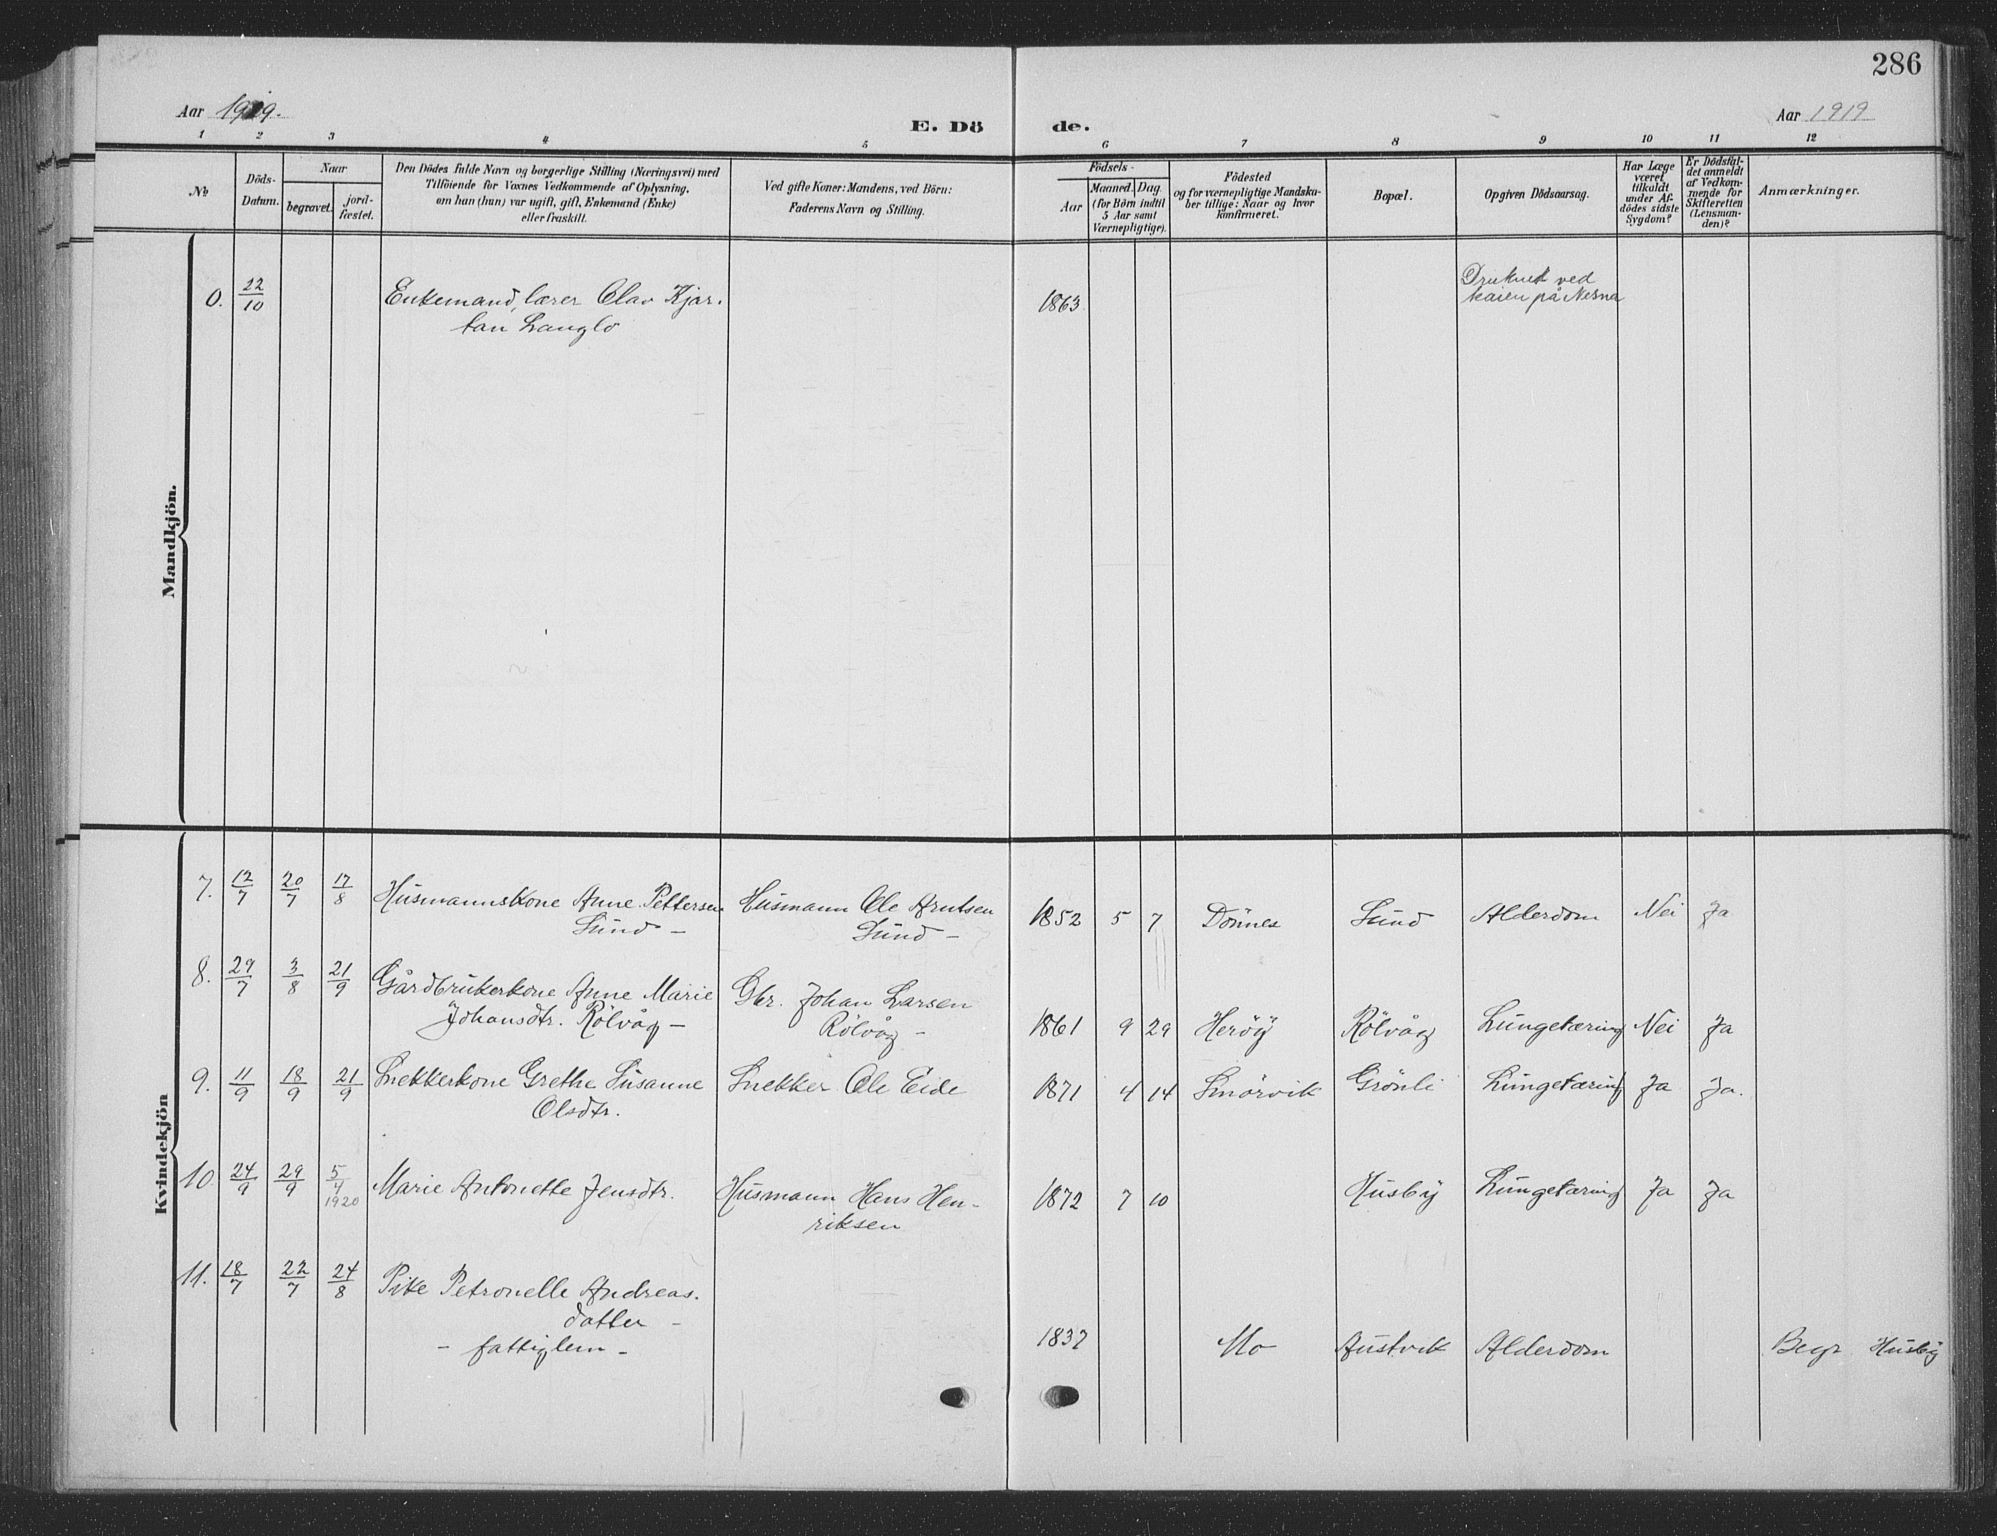 286
Aar 1919.
E. Dö
de.
Aar 1919
1 2 3 4 5 6 7 8 9 10 11 12
No
Döds-
Datum.
Naar
begravet.
jord-
fæstet.
Den Dödes fulde Navn og borgerlige Stilling (Næringsvei) med
Tilföiende for Voxnes Vedkommende af Oplysning,
om han (hun) var ugift, gift, Enkemand (Enke)
eller fraskilt.
Ved gifte Koner: Mandens, ved Börn:
Faderens Navn og Stilling.
Födsels-
Aar
Maaned. Dag
(for Börn indtil
5 Aar samt
Værnepligtige).
Födested
og for værnepligtige Mandska-
ber tillige: Naar og hvor
konfirmeret.
Bopæl.
Opgiven Dödsaarsag.
Har Læge
været
tilkaldt
under Af-
dödes sidste
Sygdom?
Er Dödsfal-
det anmeldt
af Vedkom-
mende for
Skifteretten
(Lensman-
den)?
Anmærkninger.
Mandkjön.
0. 22/10 Enkemand, lærer Olav Kjar-
tan Langlo
1863
Druknet ved
kaien på Nesna
Kvindekjön
7. 12/7 20/7 17/8 Husmannskone Anne Pettersen
Sund –
Husmann Ole Arntsen
Sund –
1852 5 7 Dönnes Sund Alderdom Nei Ja
8. 29/7 3/8 21/9 Gårdbrukerkone Anne Marie
Johansdtr. Rölvåg –
Gbr. Johan Larsen
Rölvåg –
1861 9 29 Heröy Rölvåg Lungetæring Nei Ja
9. 11/9 18/9 21/9 Snekkerkone Grethe Susanne
Olsdtr.
Snekker Ole Eide
1871 4 14 Smörvik Grönli Lungetæring Ja Ja.
10. 24/9 29/9 5/4 1920 Marie Antonette Jensdtr.
Husmann Hans Hen-
riksen
1872 7 10 Husby Lungetæring Ja Ja
11. 18/7 22/7 24/8 Pike Petronelle Andreas.
datter –
– fattiglem –
1837 Mo Austvik Alderdom Begr Husby